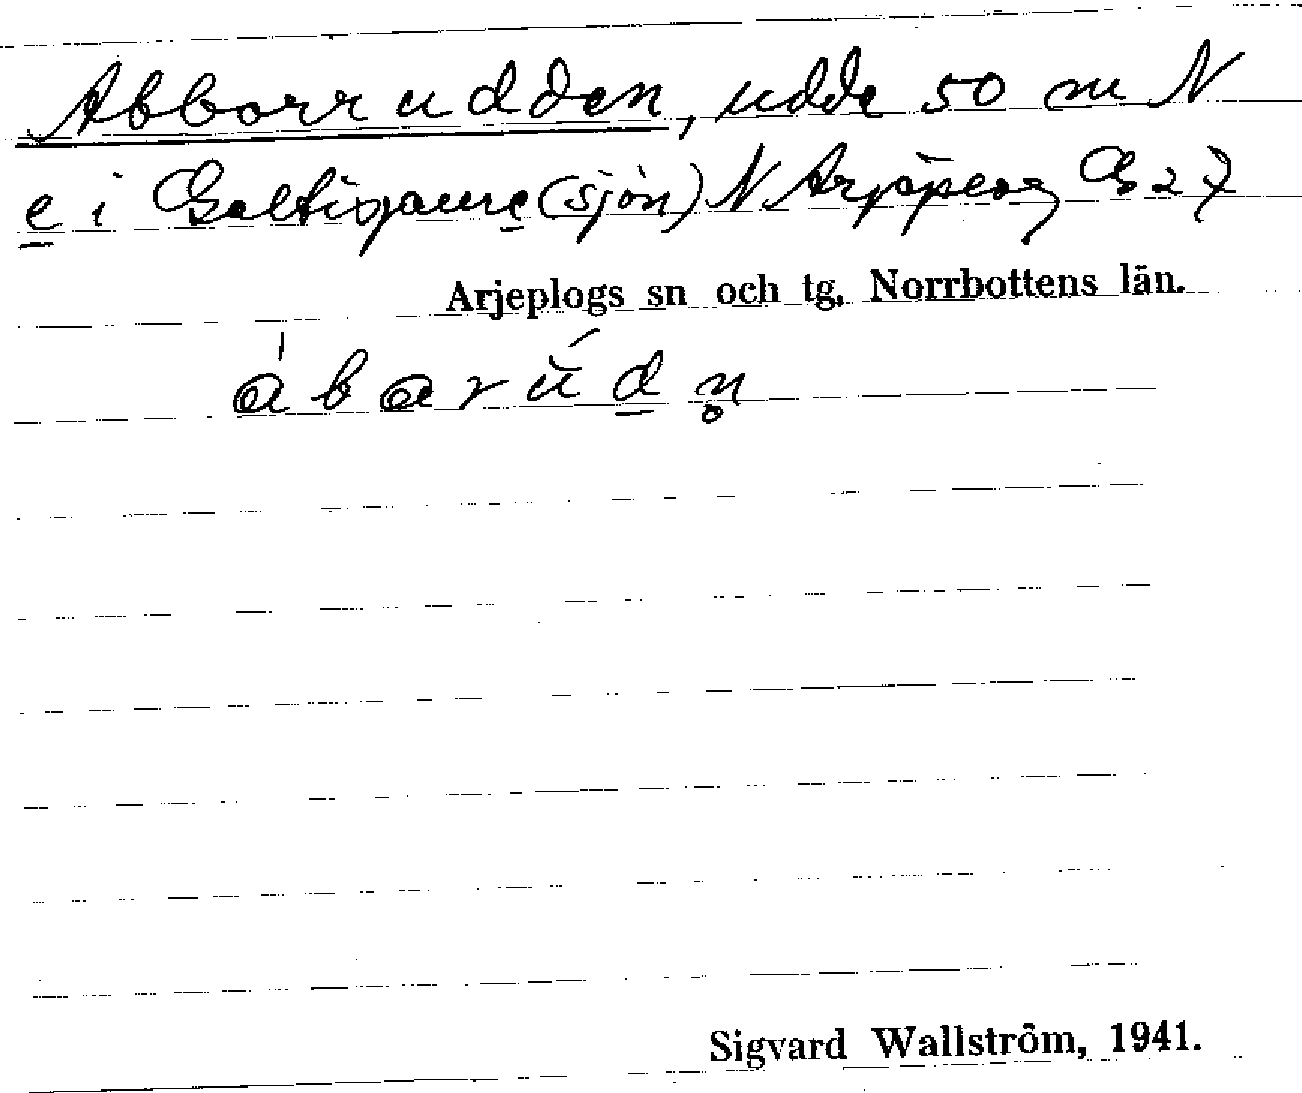 Abborrudden, udde 50 m N
e i Galtisjaure (sjön) N Arjeplog G 27
Arjeplogs sn och tg, Norrbottens län.
abarúdn̥
Sigvard Wallström, 1941.